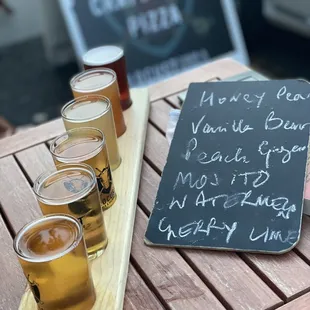 PIZZA
Honey Pear
Vanilla Bean
Peach Ginger
MOJITO
WATERMELON
CHERRY LIME